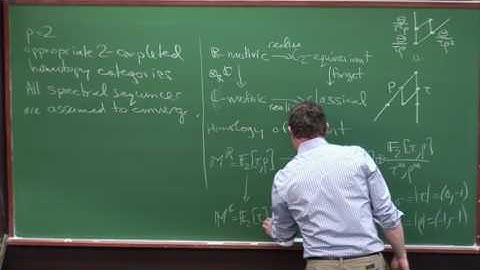 p=2
appropriate 2-completed
homotopy categories
All spectral sequences
are assumed to converge.
ℝ-motivic realize C₂ equivariant
⊗_ℝ ℂ forget
ℂ-motivic realize classical
Homology of
M^ℝ = F₂[τ,ρ]
F₂[τ,ρ] / τ^∞, ρ^∞
M^ℂ = F₂[τ]
|τ| = (0,-1)
|ρ| = (-1,-1)
ρ τ